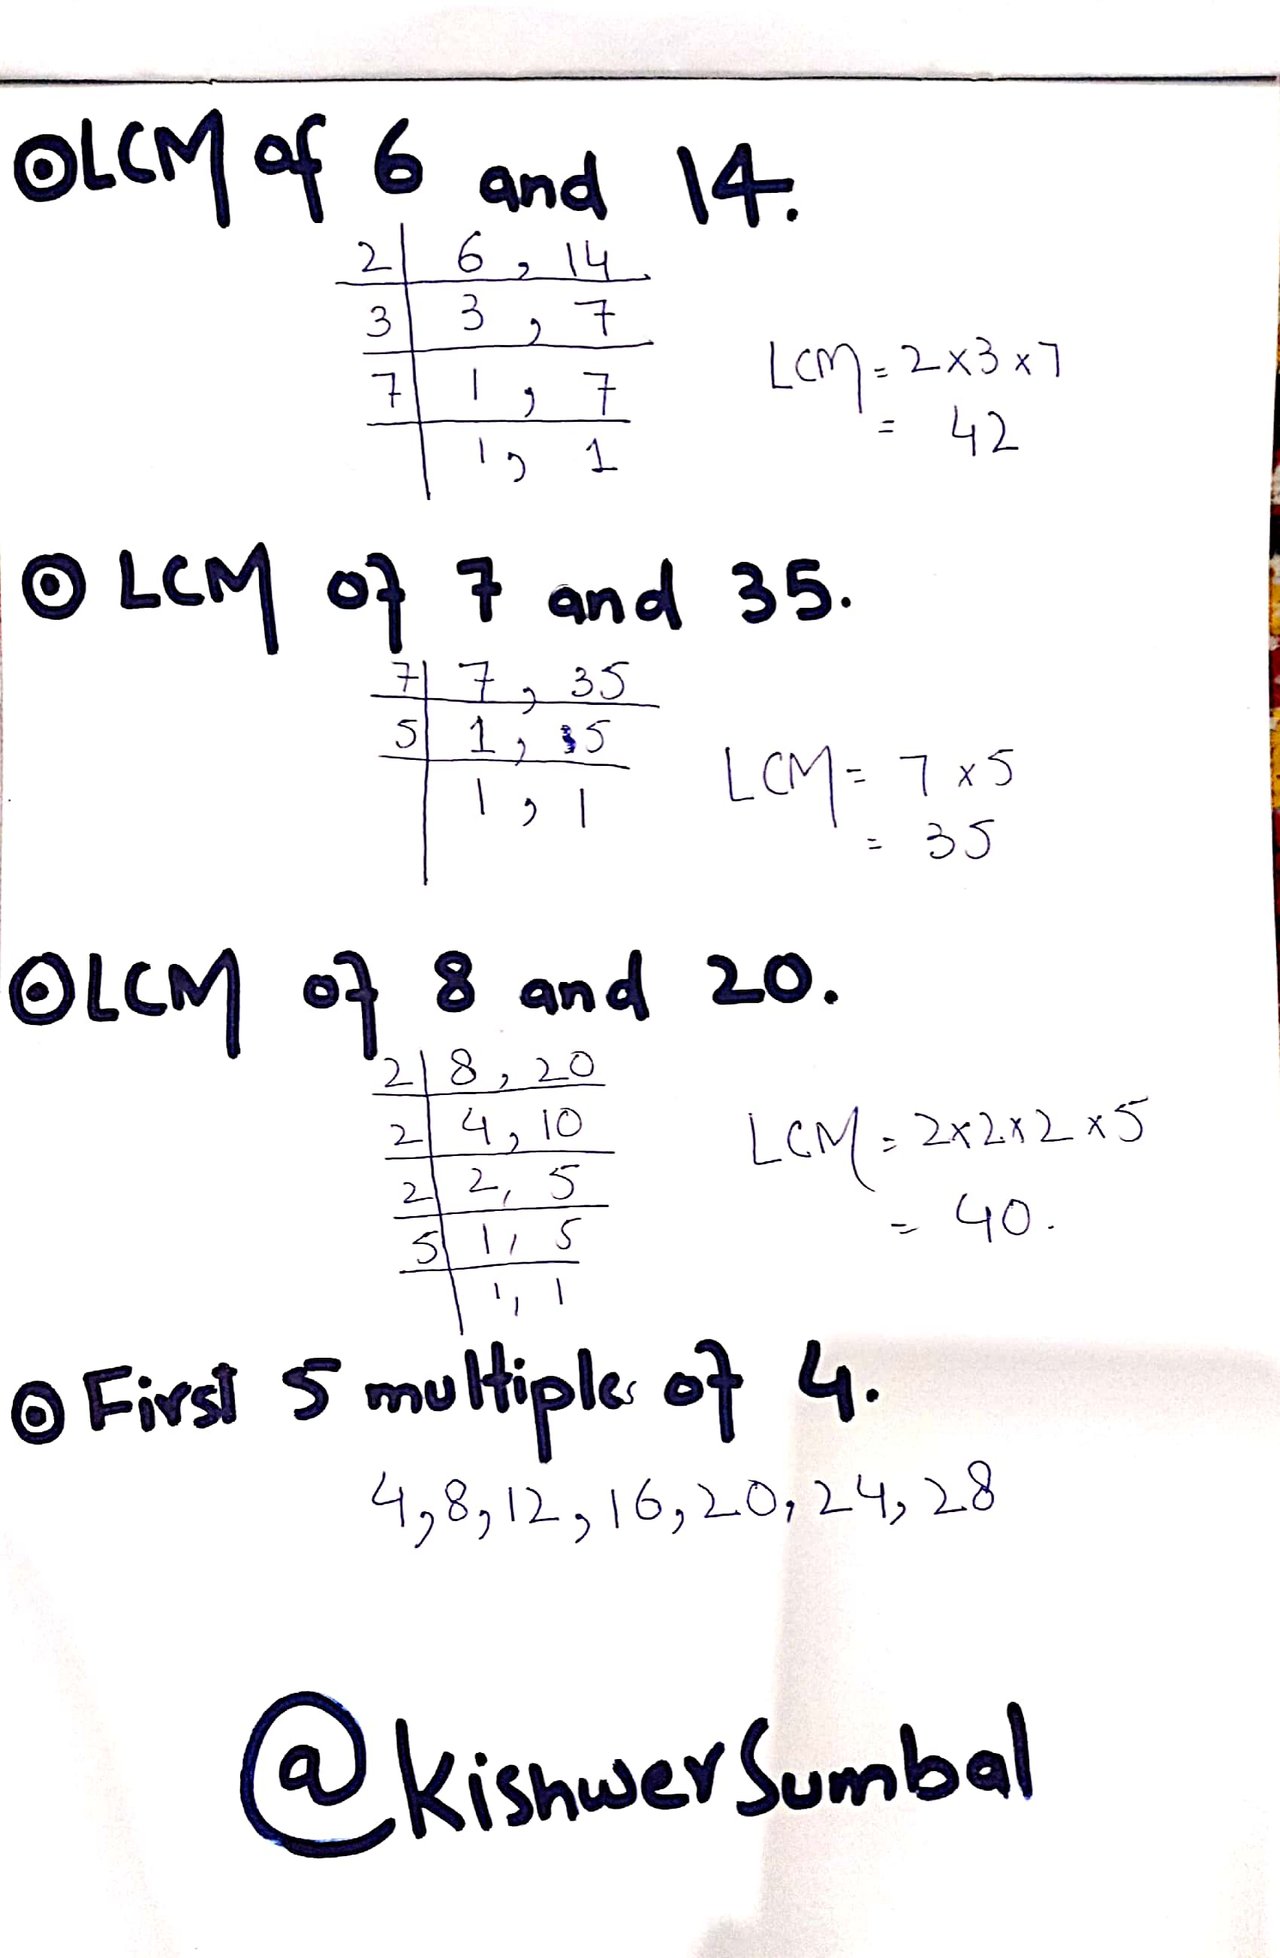 ⊙ LCM of 6 and 14.
2 | 6, 14
3 | 3, 7
7 | 1, 7
1, 1
LCM = 2 x 3 x 7
= 42
⊙ LCM of 7 and 35.
7 | 7, 35
5 | 1, 5
1, 1
LCM = 7 x 5
= 35
⊙ LCM of 8 and 20.
2 | 8, 20
2 | 4, 10
2 | 2, 5
5 | 1, 5
1, 1
LCM = 2x2x2x5
= 40.
⊙ First 5 multiples of 4.
4, 8, 12, 16, 20, 24, 28
@kishwerSumbal